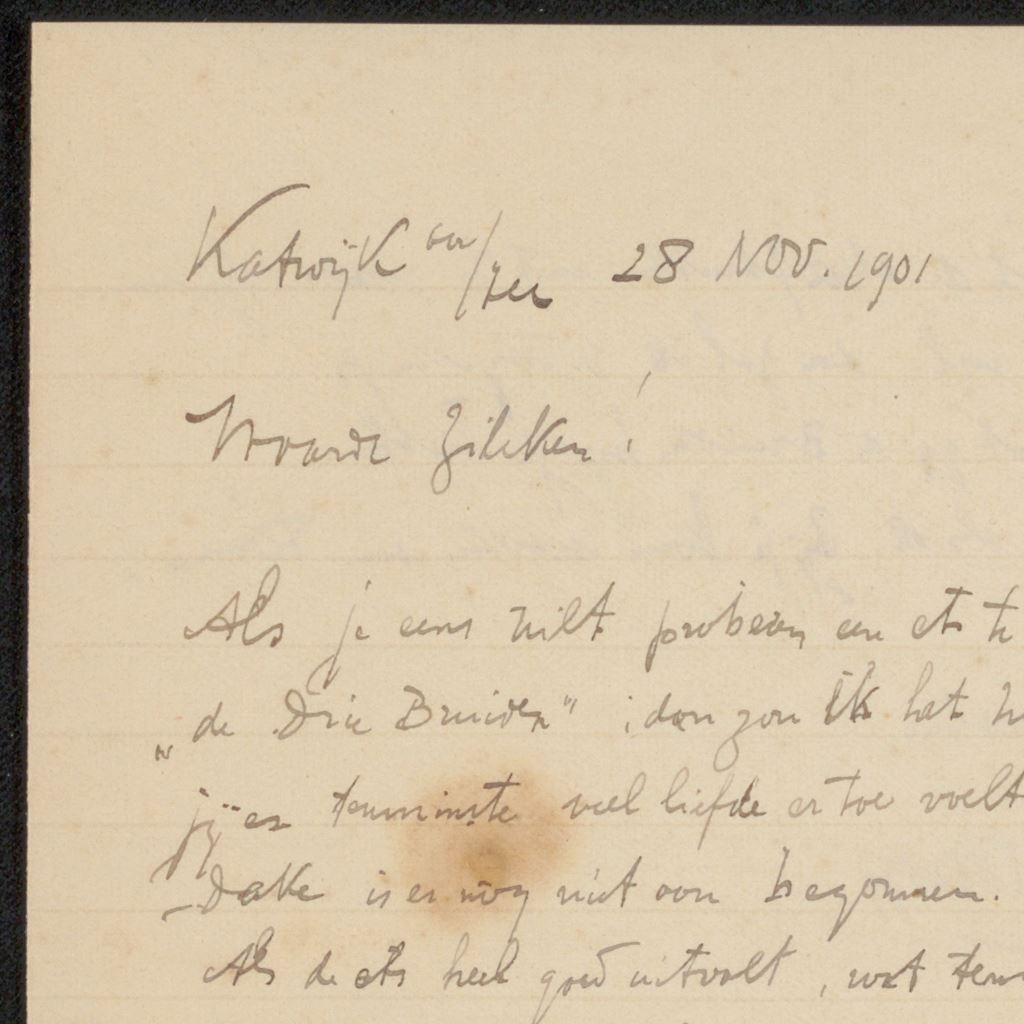 Katwijk aan/Zee 28 Nov. 1901
Waarde Zilcken!
Als je eens wilt probeeren een ets te
„de Drie Bruiden" ; dan zou ik het
jij er tenminste veel liefde er toe voelt
Dake is er nog niet aan begonnen.
Als de ets heel goed uitvalt, wat